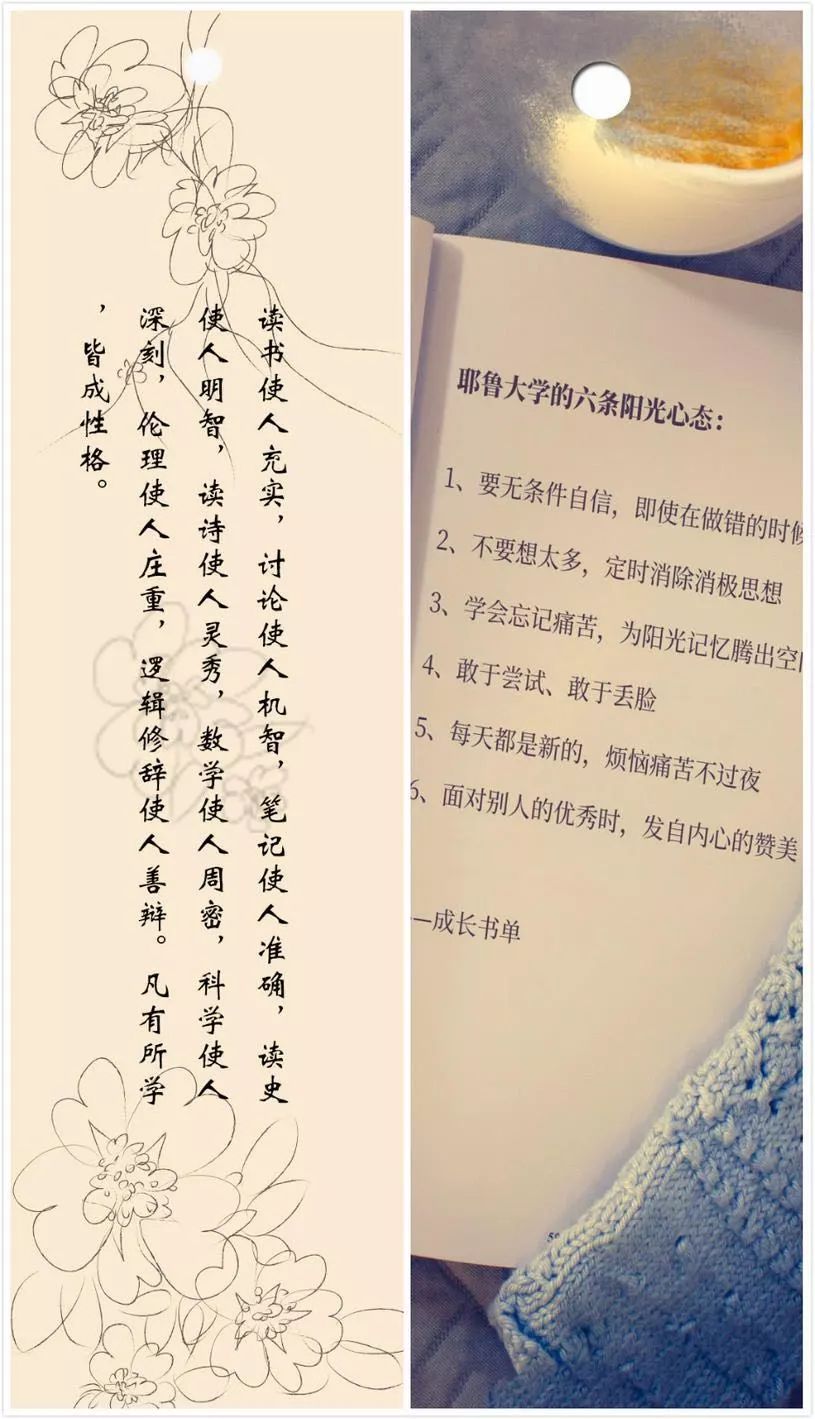 读书使人充实，讨论使人机智，笔记使人准确，读史
使人明智，读诗使人灵秀，数学使人周密，科学使人
深刻，伦理使人庄重，逻辑修辞使人善辩。凡有所学
，皆成性格。
耶鲁大学的六条阳光心态：
1、要无条件自信，即使在做错的时候
2、不要想太多，定时消除消极思想
3、学会忘记痛苦，为阳光记忆腾出空
4、敢于尝试、敢于丢脸
5、每天都是新的，烦恼痛苦不过夜
6、面对别人的优秀时，发自内心的赞美
—成长书单